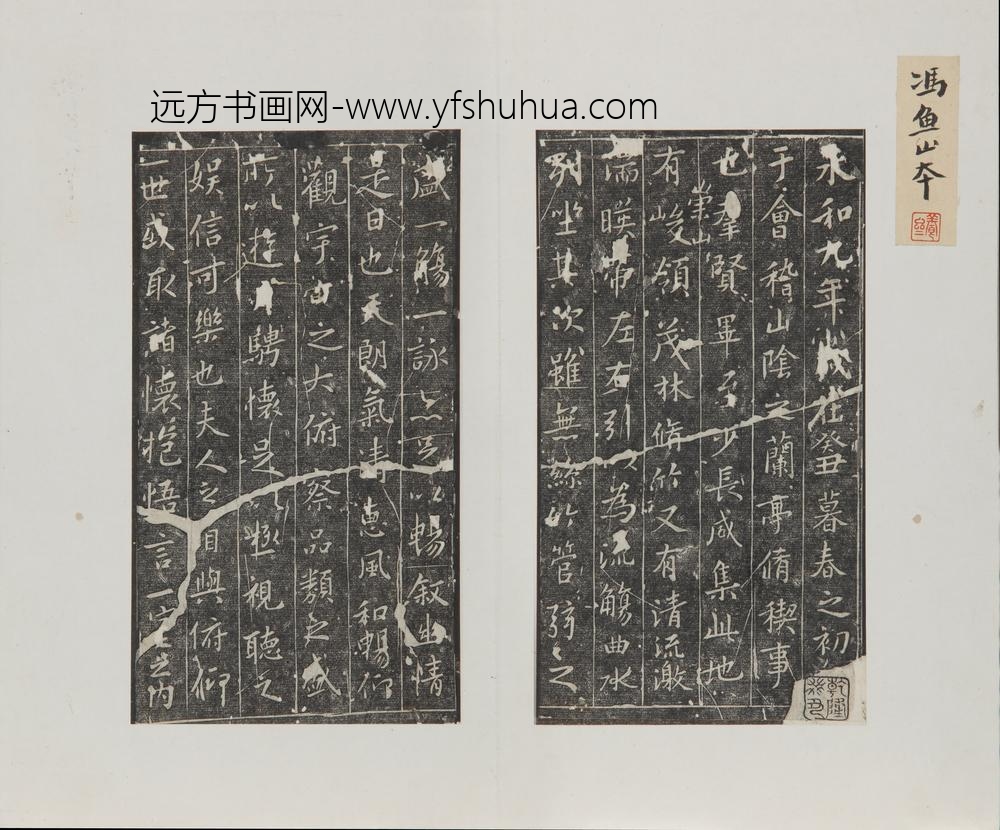 远方书画网-www.yfshuhua.com
馮魚山本
永和九年歲在癸丑暮春之初
于會稽山陰之蘭亭脩稧事
也羣賢畢至少長咸集此地
有崇山峻領茂林脩竹又有清流激
湍暎帶左右引以為流觴曲水
列坐其次雖無絲竹管弦之
盛一觴一詠亦足以暢敘幽情
是日也天朗氣清惠風和暢仰
觀宇宙之大俯察品類之盛
所以遊目騁懷足以極視聽之
娛信可樂也夫人之相與俯仰
一世或取諸懷抱悟言一室之內